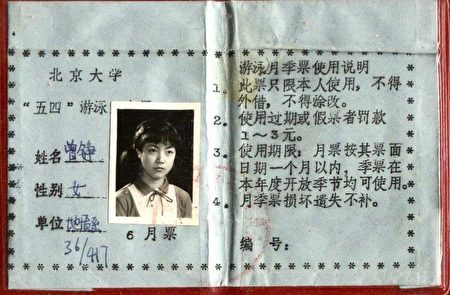 北京大学
“五四”游泳
姓名 曾铮
性别 女
单位 地质系
36/417
6月票
游泳月季票使用说明
1. 此票只限本人使用，不得
外借，不得涂改。
2. 使用过期或假票者罚款
1～3元。
3. 使用期限：月票按其票面
日期一个月以内，季票在
本年度开放季节均可使用。
4. 月季票损坏遗失不补。
编号：